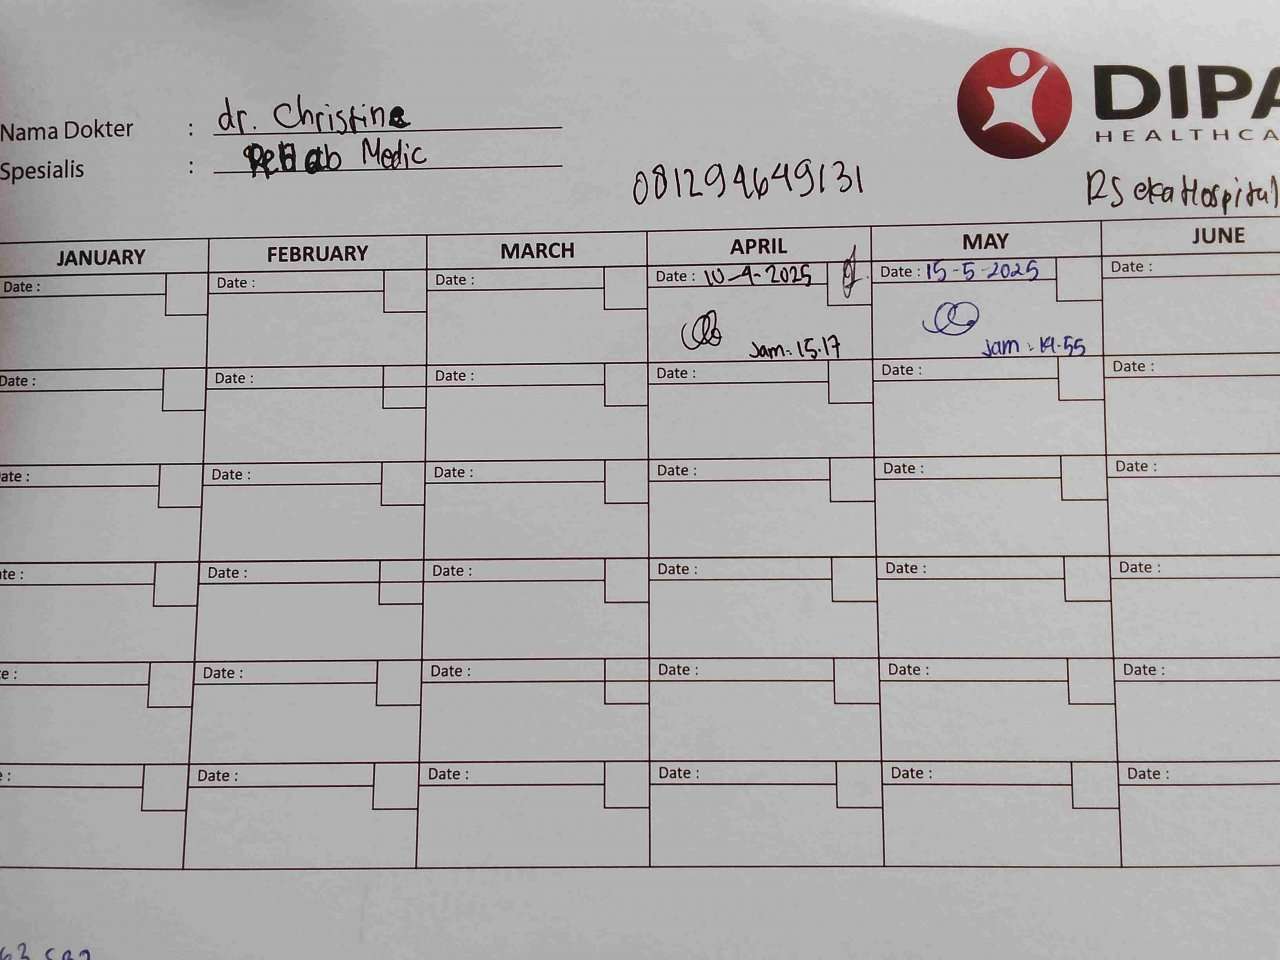 DIPA
HEALTHCA
Nama Dokter : dr. Christine
Spesialis : Rehab Medic
081294649131
RS eka Hospital
JANUARY FEBRUARY MARCH APRIL MAY JUNE
Date : Date : Date : Date : 10-4-2025 Date : 15-5-2025 Date :
Jam : 15.17 Jam : 14.55
Date : Date : Date : Date : Date : Date :
ate : Date : Date : Date : Date : Date :
te : Date : Date : Date : Date : Date :
e : Date : Date : Date : Date : Date :
: Date : Date : Date : Date : Date :